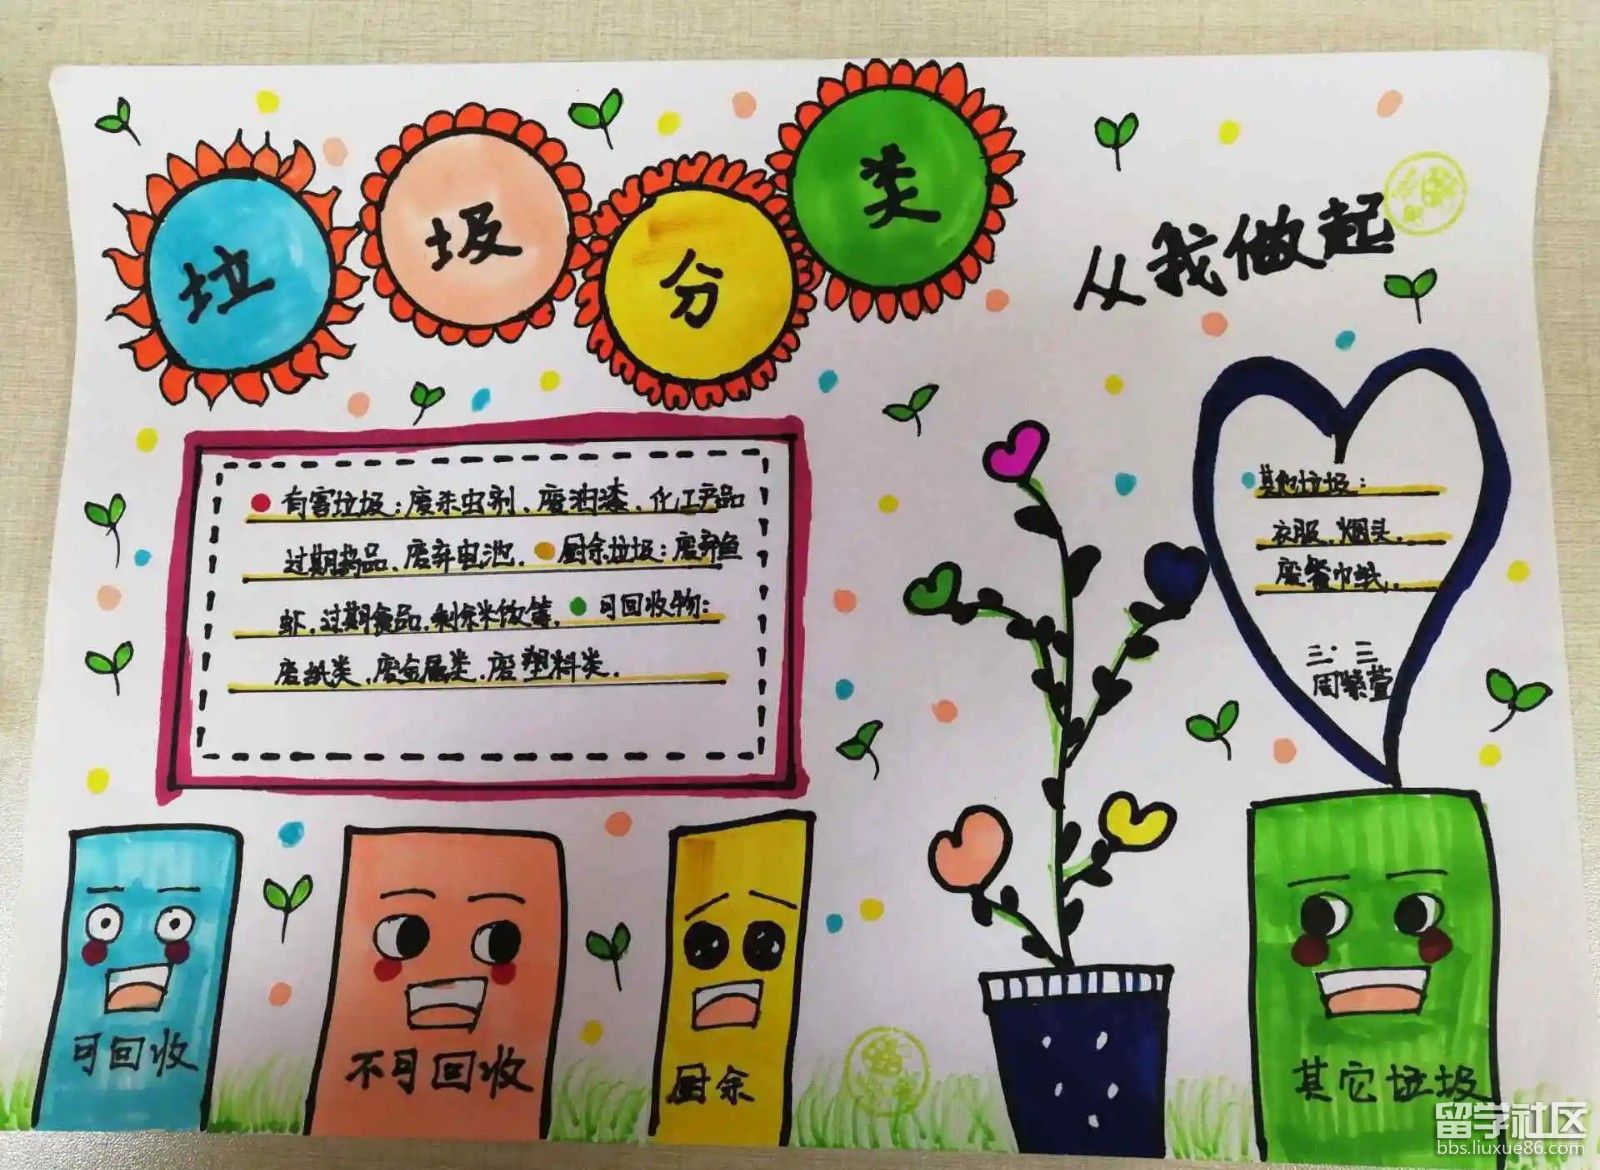 垃圾分类
从我做起
有害垃圾：废杀虫剂、废油漆、化工产品
过期药品、废弃电池、厨余垃圾：废弃鱼
虾、过期食品、剩余米饭等、可回收物：
废纸类、废金属类、废塑料类、
其他垃圾：
衣服、烟头、
废餐巾纸、
三·三
可回收
不可回收
厨余
其它垃圾
留学社区
bbs.liuxue86.com